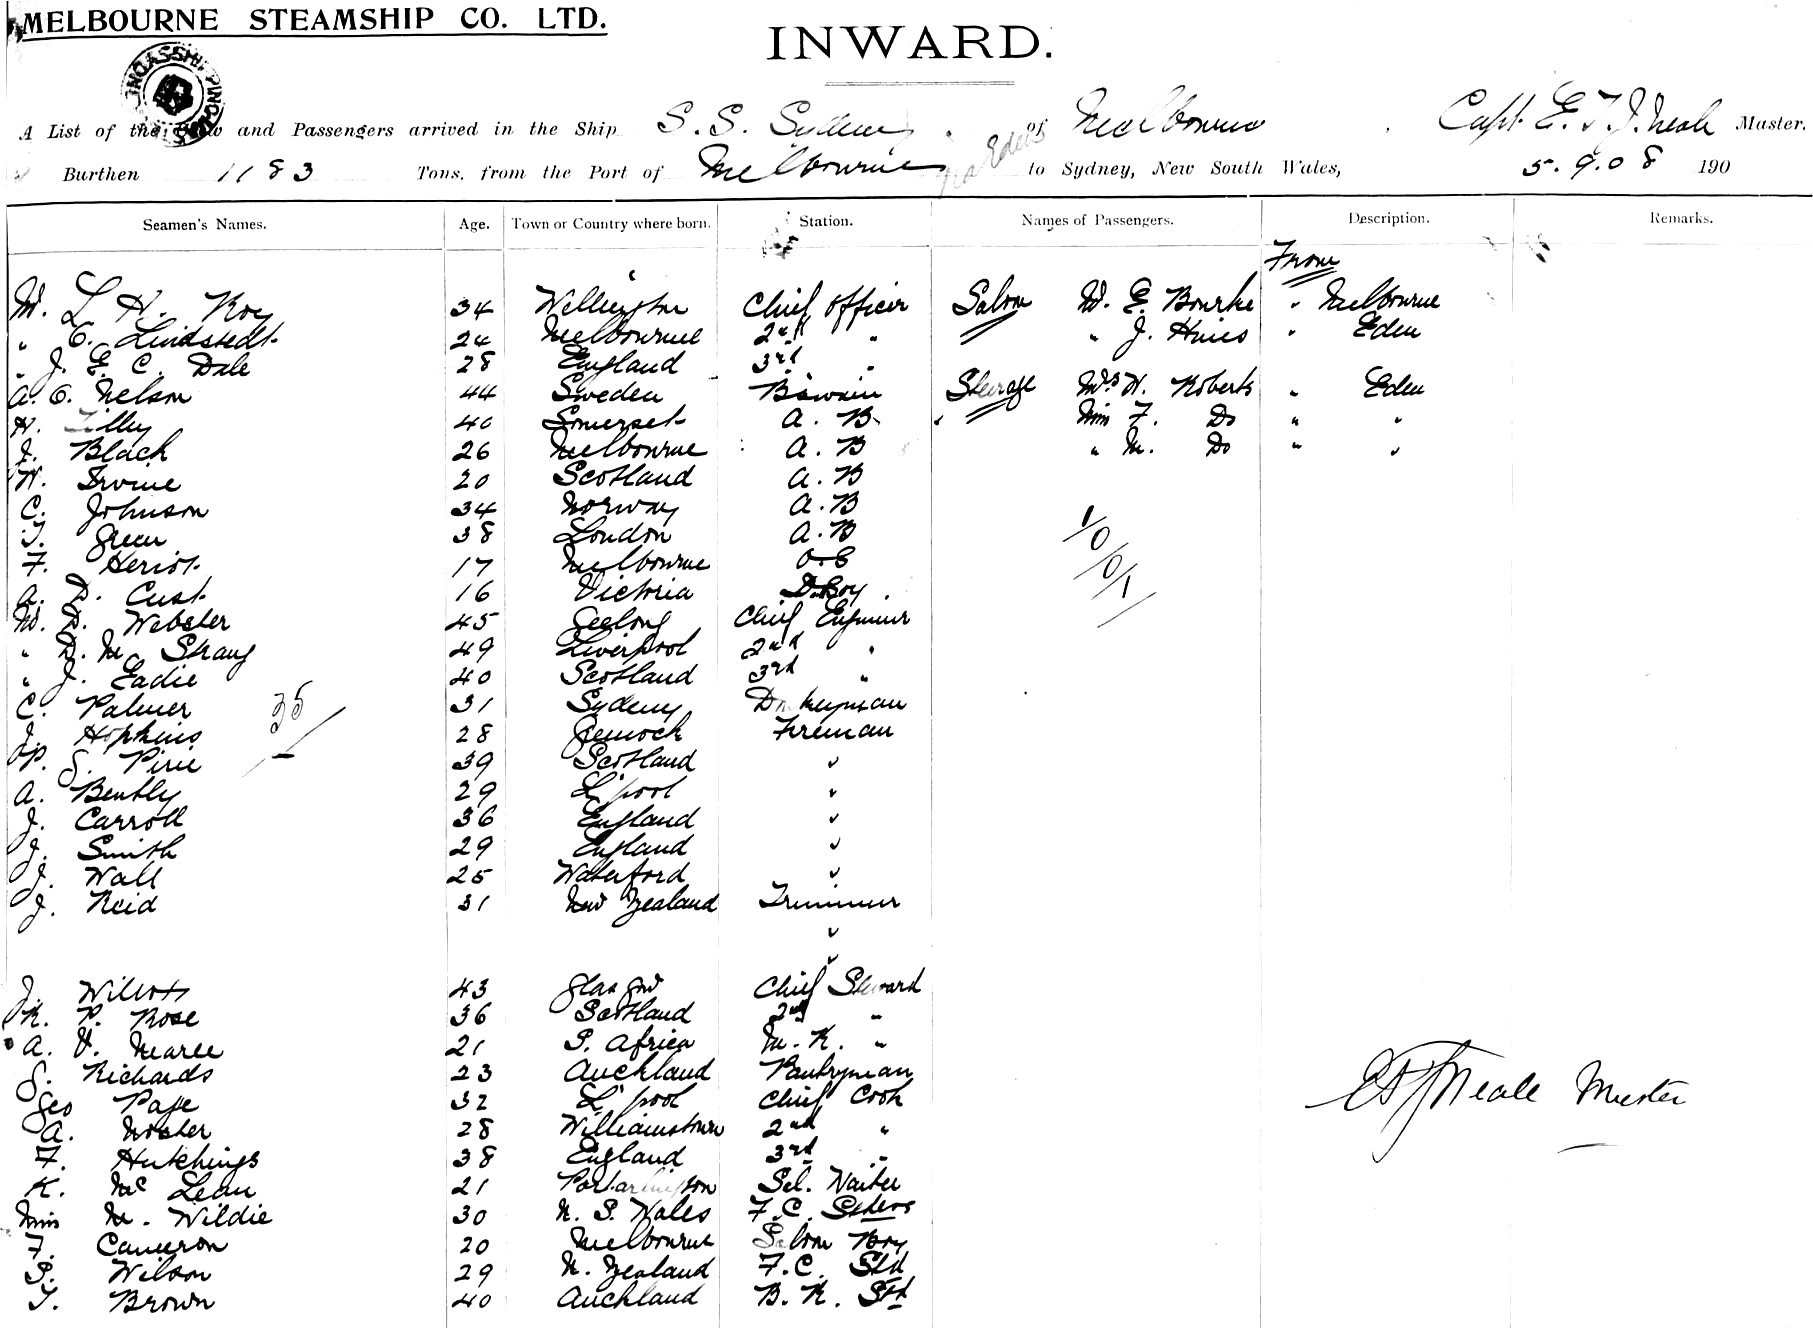 MELBOURNE STEAMSHIP CO. LTD.
INWARD.
A List of the Crew and Passengers arrived in the Ship S. S. Sydney of Melbourne Capt. E. T. J. Neale Master.
Burthen 1183 Tons, from the Port of Melbourne via Eden to Sydney, New South Wales, 5.9.08 190
Seamen's Names. Age. Town or Country where born. Station. Names of Passengers. Description. Remarks.
From
M. L. H. Roy 34 Wellington Chief Officer Saloon M. E. Bourke " Melbourne
" C. Lindstedt 24 Melbourne 2nd " " J. Hines " Eden
" J. E. C. Dale 28 England 3rd "
A. C. Nelson 44 Sweden Bswain Steerage Mrs H. Roberts " Eden
H. Tilley 40 Somerset A. B. Miss F. Do " "
J. Black 26 Melbourne A. B " M. Do " "
W. Irvine 20 Scotland A. B
C. Johnson 34 Norway A. B
T. Green 38 London A. B
F. Heriot 17 Melbourne
A. D. Cust 16 Victoria D. Boy
M. D. Webster 45 Geelong Chief Engineer
" D. M Strang 49 Liverpool 2nd "
" J. Eadie 40 Scotland 3rd "
C. Palmer 31 Sydney Donkeyman
35
J. Hopkins 28 Greenock Fireman
P. G. Pirie 39 Scotland "
A. Bently 29 L'pool "
J. Carroll 36 England "
J. Smith 29 England "
J. Wall 25 Waterford "
J. Reid 31 New Zealand Trimmer
"
"
J. 43 Glasgow Chief Steward
R. P. Rose 36 Scotland 2nd "
A. V. 21 S. Africa M. R. "
G. Richards 23 Auckland Pantryman
Geo Page 32 L'pool Chief Cook
A. 28 Williamstown 2nd "
F. Hutchings 38 England 3rd "
K. McLean 21 Portarlington Sal. Waiter
Miss M. Wildie 30 N. S. Wales F. C.
F. Cameron 20 Melbourne Saloon Boy
S. Wilson 29 N. Zealand F. C. Std
T. Brown 40 Auckland B. R. Std
E T J Neale Master